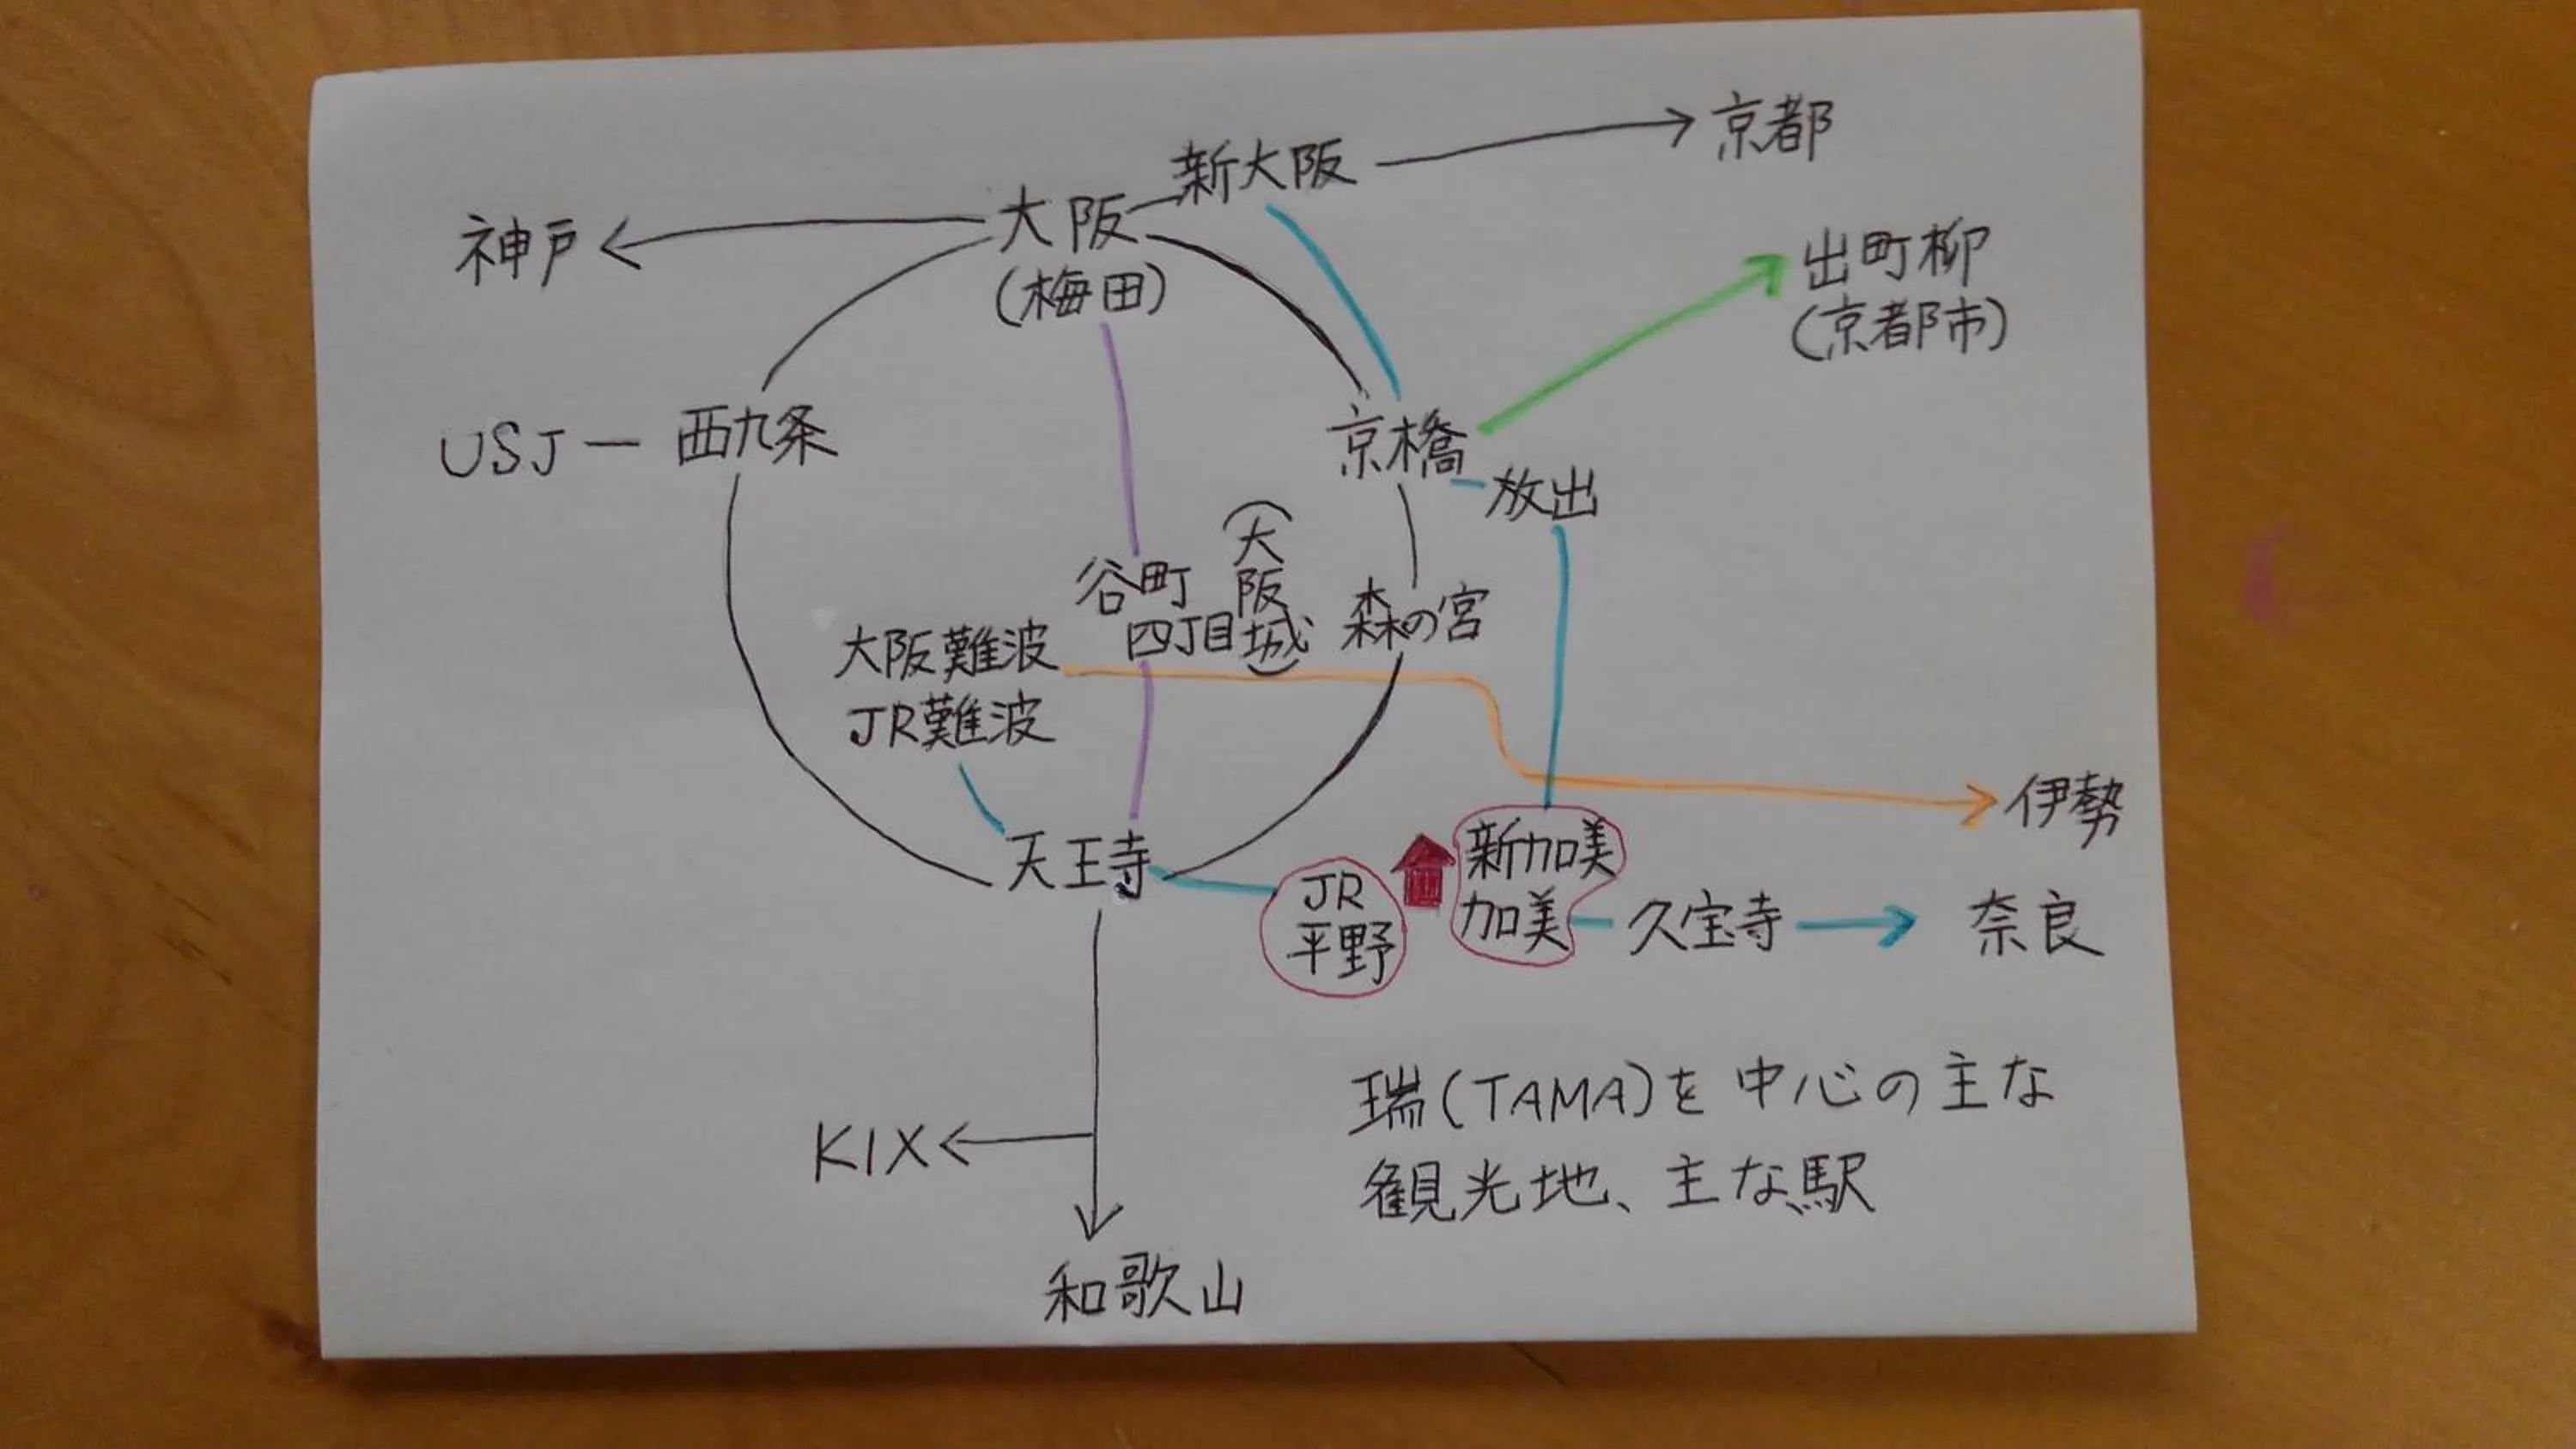 京都
新大阪
大阪
(梅田)
神戸
出町柳
(京都市)
USJ
西九条
京橋
放出
谷町
四丁目
(大阪城)
森の宮
大阪難波
JR難波
伊勢
天王寺
JR
平野
新加美
加美
久宝寺
奈良
KIX
和歌山
瑞(TAMA)を中心の主な
観光地、主な駅